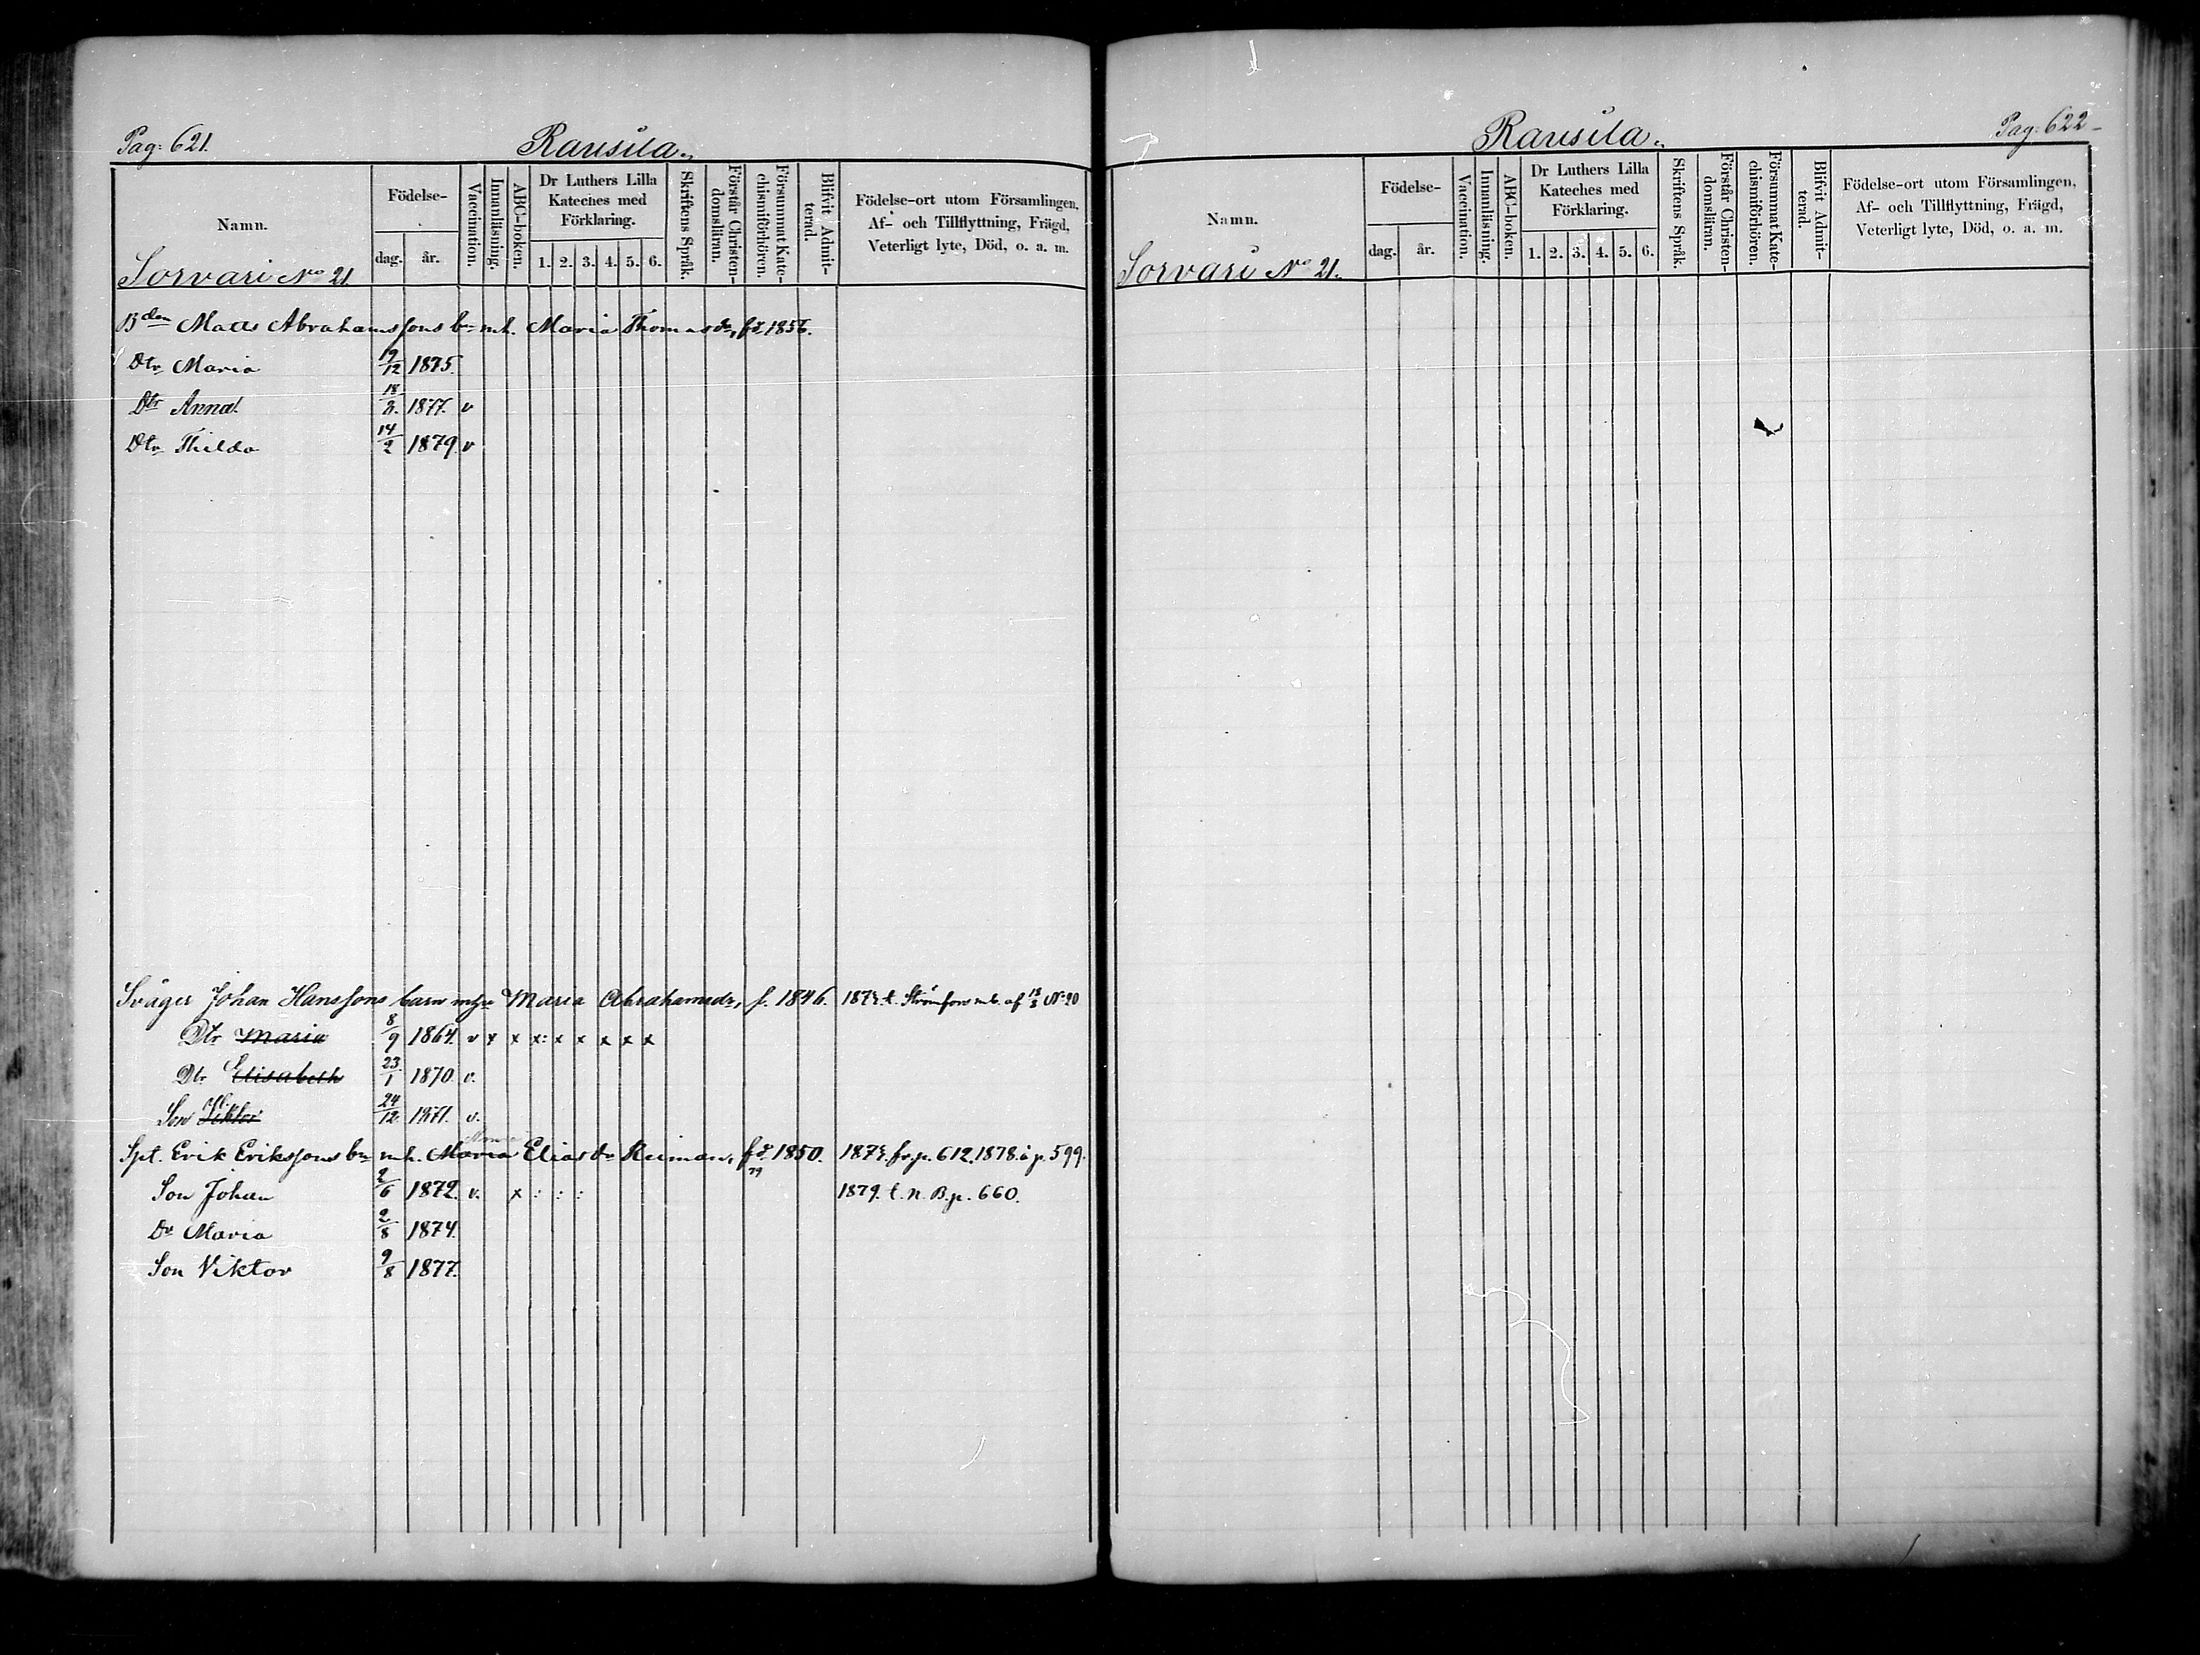 Pag: 621.
Rausila.
Namn.
Födelse-
dag.
år.
Vaccination.
Innanläsning.
ABC-boken.
Dr Luthers Lilla
Kateches med
Förklaring.
1. 2. 3. 4. 5. 6.
Skriftens Språk.
Förstår Christen-
domsläran.
Försummat Kate-
chismiförhören.
Blifvit Admit-
terad.
Födelse-ort utom Församlingen,
Af- och Tillflyttning, Frägd,
Veterligt lyte, Död, o. a. m.
Sorvari No 21
Bden Matts Abrahamssons bn m.h. Maria Thomasdr, fd 1856.
Dtr Maria 19/12 1875.
Dtr Anna 18/3. 1877. v
Dtr Thilda 14/2 1879 v
Sváger Johan Hanssons barn m Maria Abrahamsdr, f. 1846. t. Strömfors m.b. af No 20
Dtr Maria 8/9 1864. v x x x: x x x x x
Dtr Elisabeth 23/1 1870. v.
Son Viktor 24/12 1871. v.
Spt. Erik Erikssons bn m.h. Maria Eliasdr Reiman, fd 1850. fr. p. 612. 1878. i p. 599.
Son Johan 2/6 1872. v. x : : : 1879. t. N. B. p. 660.
Dr Maria 2/8 1874.
Son Viktor 9/8 1877.
Rausila.
Pag: 622
Namn.
Födelse-
dag.
år.
Vaccination.
Innanläsning.
ABC-boken.
Dr Luthers Lilla
Kateches med
Förklaring.
1. 2. 3. 4. 5. 6.
Skriftens Språk.
Förstår Christen-
domsläran.
Försummat Kate-
chismiförhören.
Blifvit Admit-
terad.
Födelse-ort utom Församlingen,
Af- och Tillflyttning, Frägd,
Veterligt lyte, Död, o. a. m.
Sorvari No 21.